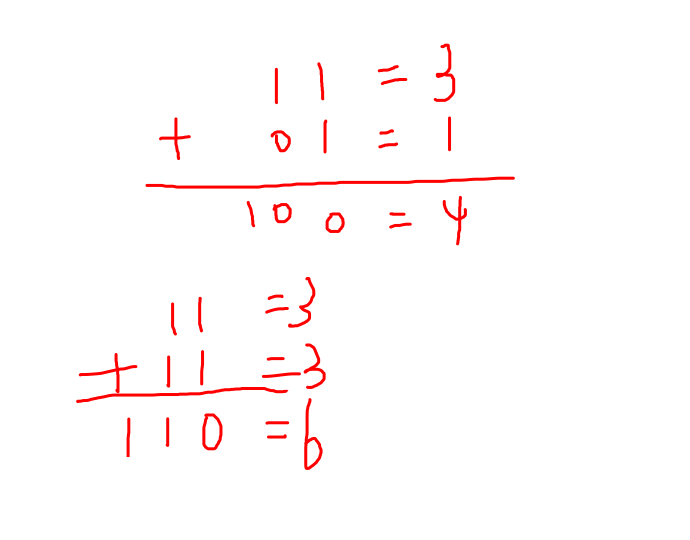 11 = 3
+ 01 = 1
100 = 4
11 = 3
+ 11 = 3
110 = 6